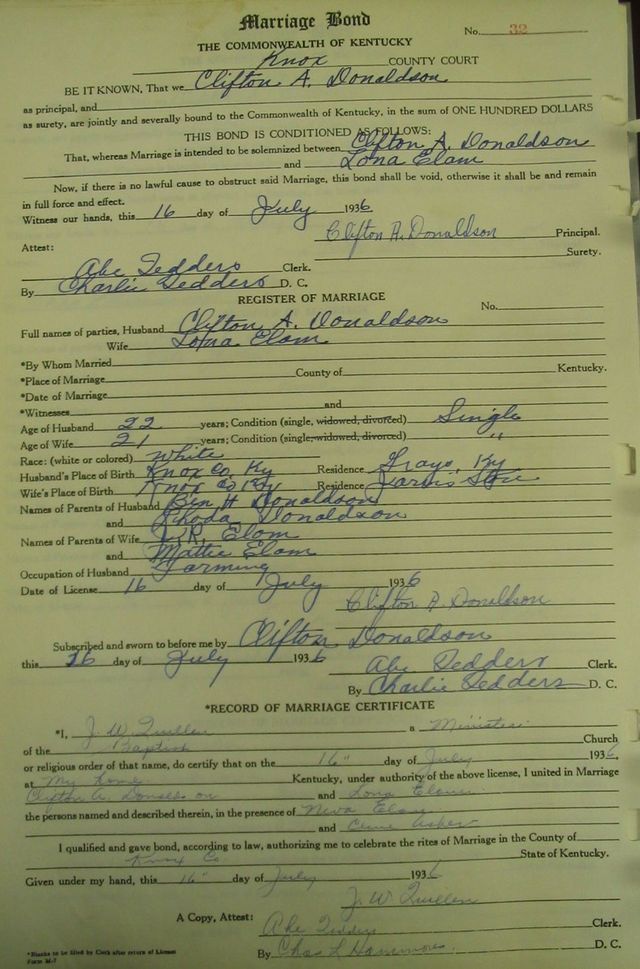 Marriage Bond
No. 32
THE COMMONWEALTH OF KENTUCKY
Knox COUNTY COURT
BE IT KNOWN, That we Clifton A. Donaldson
as principal, and
as surety, are jointly and severally bound to the Commonwealth of Kentucky, in the sum of ONE HUNDRED DOLLARS
THIS BOND IS CONDITIONED AS FOLLOWS:
That, whereas Marriage is intended to be solemnized between Clifton A. Donaldson
and Lona Elam
Now, if there is no lawful cause to obstruct said Marriage, this bond shall be void, otherwise it shall be and remain
in full force and effect.
Witness our hands, this 16 day of July 1936
Clifton A. Donaldson Principal.
Attest: Surety.
Abe Tedders Clerk.
By Charlie Tedders D. C.
REGISTER OF MARRIAGE
No.
Full names of parties, Husband Clifton A. Donaldson
Wife Lona Elam
*By Whom Married
*Place of Marriage County of Kentucky.
*Date of Marriage
*Witnesses and
Age of Husband 22 years; Condition (single, widowed, divorced) Single
Age of Wife 21 years; Condition (single, widowed, divorced) "
Race: (white or colored) White
Husband's Place of Birth Knox Co, Ky Residence Grays, Ky
Wife's Place of Birth Knox Co Ky Residence Jarvis Store
Names of Parents of Husband Ben H Donaldson
and Rhoda Donaldson
Names of Parents of Wife R. Elam
and Mattie Elam
Occupation of Husband Farming
Date of License 16 day of July 1936
Clifton A. Donaldson
Subscribed and sworn to before me by Clifton Donaldson
this 16 day of July 1936
Abe Tedders Clerk.
By Charlie Tedders D. C.
*RECORD OF MARRIAGE CERTIFICATE
*I, J. W. Quillen a Minister
of the Baptist Church
or religious order of that name, do certify that on the 16" day of July 1936,
at My home Kentucky, under authority of the above license, I united in Marriage
Clifton A. Donaldson and Lona Elam
the persons named and described therein, in the presence of Neva Elam
and Asher
I qualified and gave bond, according to law, authorizing me to celebrate the rites of Marriage in the County of
Knox Co State of Kentucky.
Given under my hand, this 16" day of July 1936
J. W. Quillen
A Copy, Attest: Abe Tedders Clerk.
By Chas L Hammons D. C.
*Blanks to be filled by Clerk after return of License
Form M-7